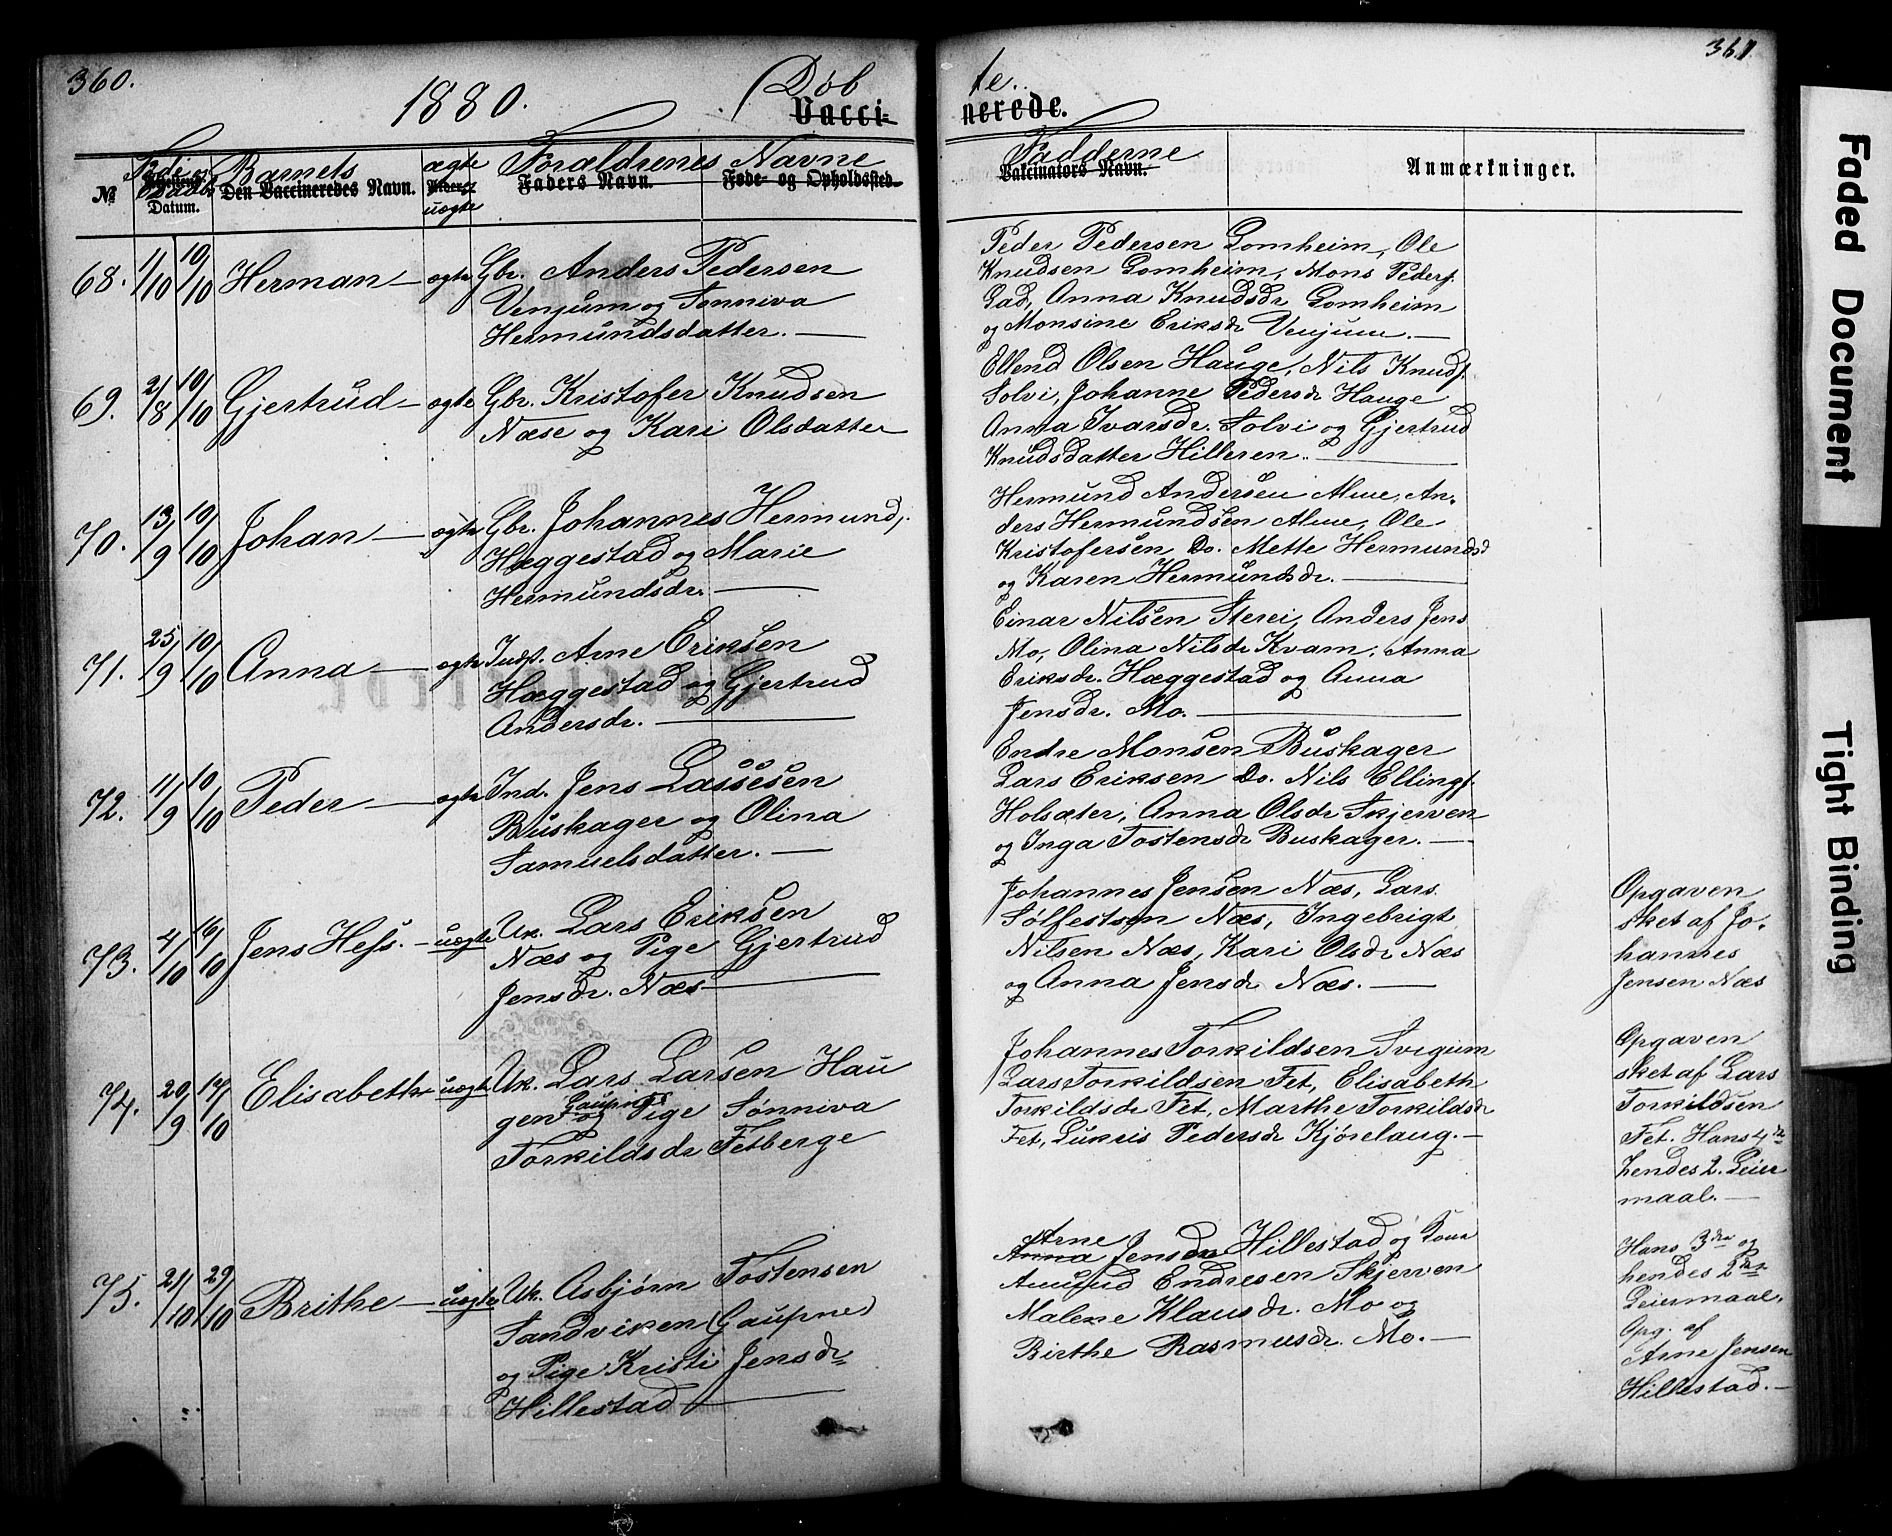 360.
1880.
Døb
Vacci-
№
Føds. og
Datum.
Barnets
Den Vaccineredes Navn.
ægte
Alder.
uægte
Forældrenes Navne
Faders Navn.
Føde- og Opholdssted.
68. 1/10 10/10 Herman — ægte Gbr. Anders Pedersen
Venjum og Sønniva
Hermundsdatter. —
69. 2/8 10/10 Gjertrud — ægte Gbr. Kristofer Knudsen
Næse og Kari Olsdatter
70. 13/9 10/10 Johan — ægte Gbr. Johannes Hermunds.
Hæggestad og Marie
Hermundsdr. —
71. 25/9 10/10 Anna — ægte Indst. Arne Eriksen
Hæggestad og Gjertrud
Andersdr. —
72. 11/9 10/10 Peder — ægte Ind. Jens Lassesen
Buskager og Olina
Samuelsdatter. —
73. 4/10 16/10 Jens Hess. — uægte Uk. Lars Eriksen
Næs og Pige Gjertrud
Jensdr. Næs —
74. 20/9 17/10 Elisabeth uægte Uk. Lars Larsen Hau
Gaupne
gen og Pige Sønniva
Torkildsdr Fetberge
75. 21/10 29/10 Brithe — uægte Uk. Asbjørn Tostensen
Sandviken (Gaupne)
og Pige Kristi Jensdr
Hillestad —
361.
te.
nerede.
Fadderne
Vakcinators Navn.
Anmærkninger.
Peder Pedersen Lomheim, Ole
Knudsen Lomheim, Mons Peders.
Gad, Anna Knudsdr Lomheim
og Monsine Eriksdr Venjum. —
Ellend Olsen Hauge, Nils Knuds.
Solvi, Johanne Pedersdr Hauge
Anna Ivarsdr. Solvi og Gjertrud
Knudsdatter Hilleren. —
Hermund Andersen Alme, An-
ders Hermundsen Alme, Ole
Kristofersen Do. Mette Hermundsd
og Karen Hermundsdr. —
Einar Nilsen Sterei, Anders Jens
Mo, Olina Nilsdr Kvam, Anna
Eriksdr. Hæggestad og Anna
Jensdr. Mo. —
Endre Monsen Buskager
Lars Eriksen Do. Nils Ellings.
Holsæter, Anna Olsdr Skjerven
og Inga Tostensdr Buskager. —
Johannes Jensen Næs, Lars
Sølfestsen Næs, Ingebrigt
Nilsen Næs, Kari Olsdr Næs
og Anna Jensdr Næs. —
Opgaven
sket af Jo-
hannes
Jensen Næs
Johannes Torkildsen Svegum
Lars Torkildsen Fet, Elisabeth
Torkildsdr Fet, Marthe Torkildsdr
Fet, Lukris Pedersdr Kjørelaug. —
Opgaven
sket af Lars
Torkildsen
Fet. Hans 4de
hendes 2. Leier
maal. —
Arne
Anna Jensen Hillestad og Kona
Endresen Skjerven
Malene Klausdr. Mo og
Birthe Rasmusdr. Mo. —
Hans 3die og
hendes 2det
Leiermaal,
Opg. af
Arne Jensen
Hillestad. —
Faded Document
Tight Binding